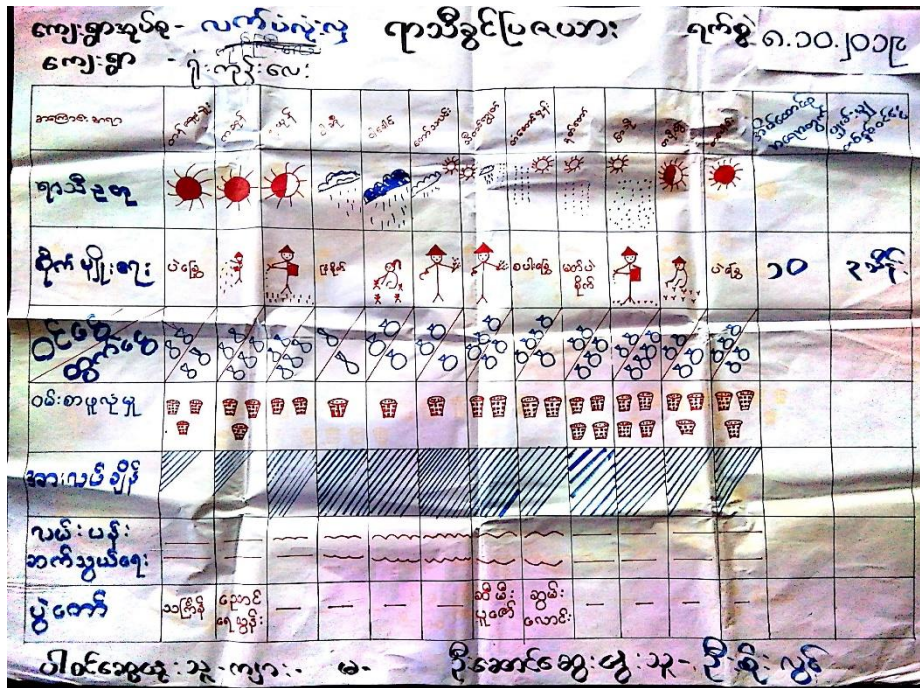 ကျေးရွာအုပ်စု - လက်ပံလုံးလှ ရာသီခွင်ပြဇယား ရက်စွဲ ၈.၁၀.၂၀၁၉
ကျေးရွာ - ရုံးကုန်းလေး
အကြောင်းအရာ တန်ခူး ကဆုန် နယုန် ဝါဆို ဝါခေါင် တော်သလင်း သီတင်းကျွတ် တန်ဆောင်မုန်း နတ်တော် ပြာသို တပို့တွဲ တပေါင်း
ရာသီဥတု
စိုက်ပျိုးရေး ပဲခြွေ စပါးခြွေ မတ်ပဲစိုက် ပဲခြွေ ၁၀ ၃သိန်း
ဝင်ငွေ
ထွက်ငွေ
ဝမ်းစာဖူလုံမှု
အားလပ်ချိန်
လမ်းပန်း
ဆက်သွယ်ရေး
ပွဲတော် သင်္ကြန် ညောင်ရေသွန်း ဆီမီးပူဇော် ဆွမ်းလောင်း
ပါဝင်ဆွေးနွေးသူ - ကျား - မ - ဦးဆောင်ဆွေးနွေးသူ - ဦးစိုးလွင်